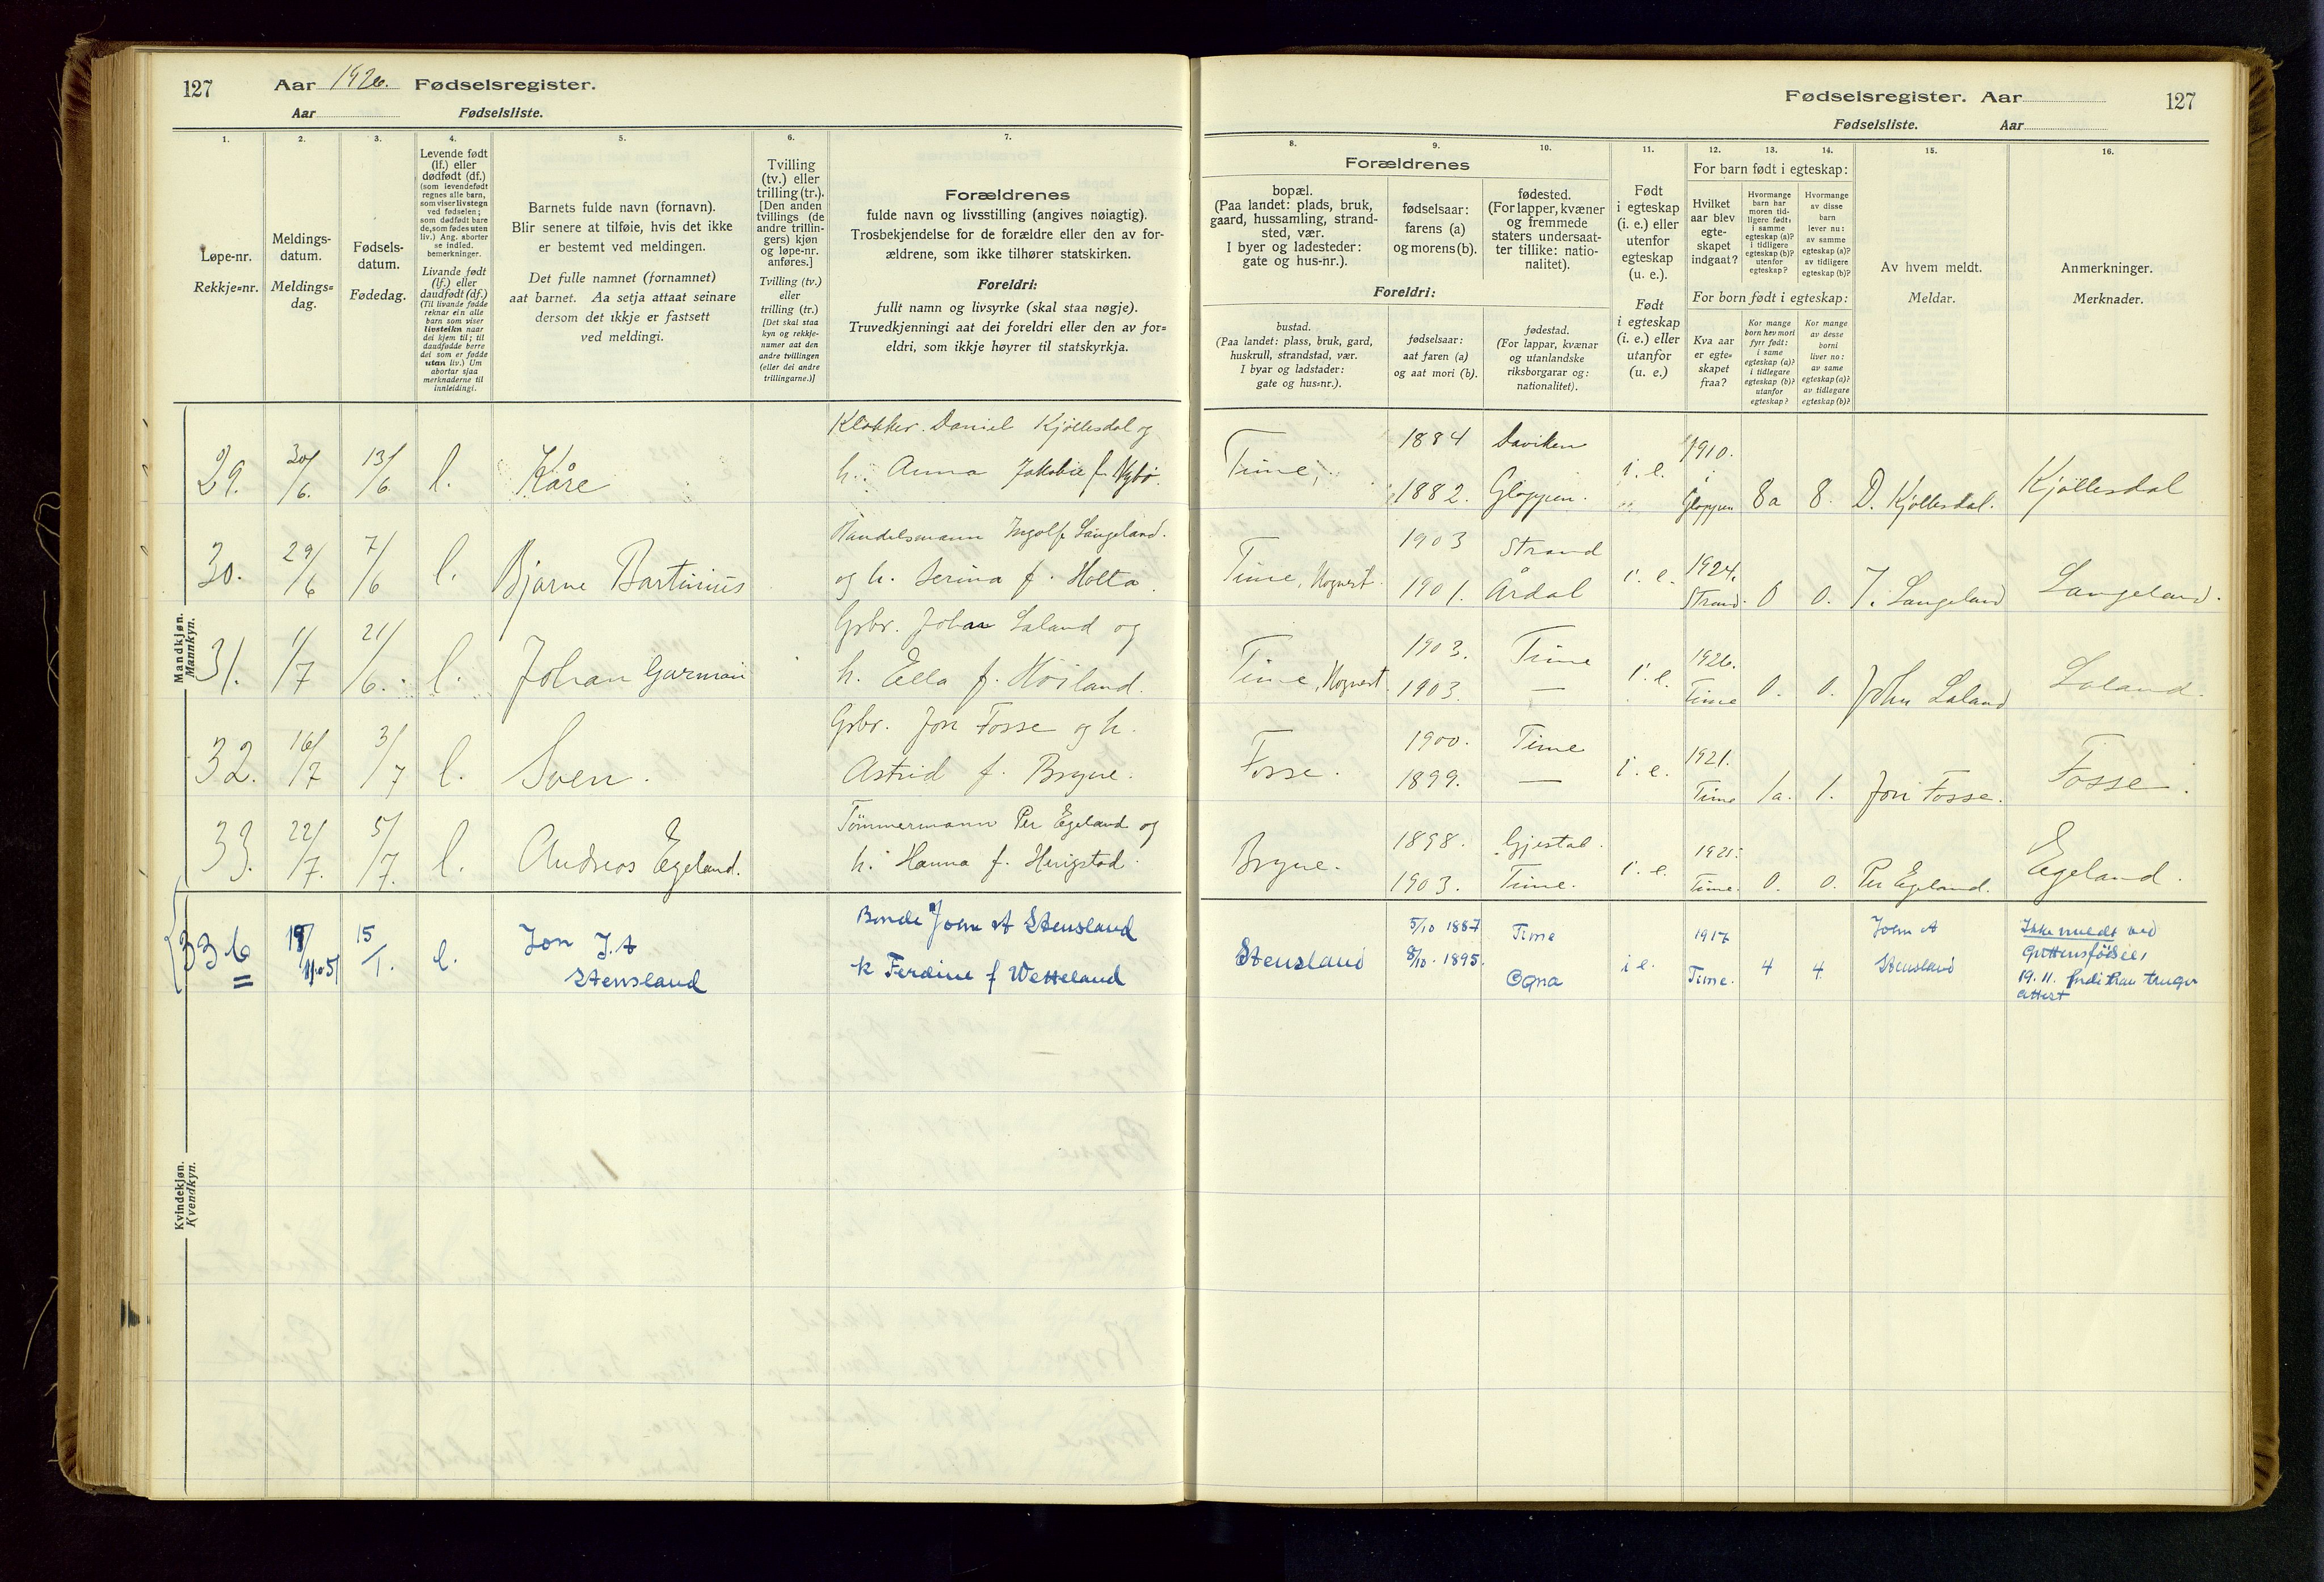 127 Aar 1926. Fødselsregister.
Aar Fødselsliste.
Fødselsregister. Aar 127
Fødselsliste. Aar
1. 2. 3. 4. 5. 6. 7. 8. 9. 10. 11. 12. 13. 14. 15. 16.
Løpe-nr.
Rekkje=nr.
Meldings-
datum.
Meldings=
dag.
Fødsels-
datum.
Fødedag.
Levende født
(lf.) eller
dødfødt (df.)
(som levendefødt
regnes alle barn,
som viser livstegn
ved fødselen;
som dødfødt bare
de, som fødes uten
liv.) Ang. aborter
se indled.
bemerkninger.
Livande født
(lf.) eller
daudfødt (df.)
(Til livande fødde
reknar ein alle
barn som viser
livsteikn naar
dei kjem til; til
daudfødde berre
dei som er fødde
utan liv.) Um
abortar sjaa
merknaderne til
innleidingi.
Barnets fulde navn (fornavn).
Blir senere at tilføie, hvis det ikke
er bestemt ved meldingen.
Det fulle namnet (fornamnet)
aat barnet. Aa setja attaat seinare
dersom det ikkje er fastsett
ved meldingi.
Tvilling
(tv.) eller
trilling (tr.).
[Den anden
tvillings (de
andre trillin-
gers) kjøn
og løpe-nr.
anføres.]
Tvilling (tv.)
eller
trilling (tr.)
[Det skal staa
kyn og rekkje-
numer aat den
andre tvillingen
(eller dei andre
trillingarne.)]
Forældrenes
fulde navn og livsstilling (angives nøiagtig).
Trosbekjendelse for de forældre eller den av for-
ældrene, som ikke tilhører statskirken.
Foreldri:
fullt namn og livsyrke (skal staa nøgje).
Truvedkjenningi aat dei foreldri eller den av for=
eldri, som ikkje høyrer til statskyrkja.
Forældrenes
bopæl.
(Paa landet: plads, bruk,
gaard, hussamling, strand-
sted, vær.
I byer og ladesteder:
gate og hus-nr.).
fødselsaar:
farens (a)
og morens (b).
fødested.
(For lapper, kvæner
og fremmede
staters undersaat-
ter tillike: natio-
nalitet).
Foreldri:
bustad.
(Paa landet: plass, bruk, gard,
huskrull, strandstad, vær.
I byar og ladstader:
gate og hus=nr.).
fødselsaar:
aat faren (a)
og aat mori (b).
fødestad.
(For lappar, kvænar
og utanlandske
riksborgarar og:
nationalitet).
Født
i egteskap
(i. e.) eller
utenfor
egteskap
(u. e.).
Født
i egteskap
(i. e.) eller
utanfor
(u. e.)
For barn født i egteskap:
Hvilket
aar blev
egte-
skapet
indgaat?
Hvormange
barn har
moren tid-
ligere født:
i samme
egteskap (a)?
i tidligere
egteskap (b)?
utenfor
egteskap?
Hvormange
av disse
barn
lever nu:
av samme
egteskap (a)?
av tidligere
egteskap (b)?
For born født i egteskap:
Kva aar
er egte-
skapet
fraa?
Kor mange
born hev mori
fyrr født:
i same
egteskap (a)?
i tidlegare
egteskap (b)?
utanfor
egteskap?
Kor mange
av desse
borni
liver no:
av same
egteskap (a)?
av tidlegare
egteskap (b)?
Av hvem meldt.
Meldar.
Anmerkninger.
Merknader.
Mandkjøn.
Mannkyn.
29. 30/6. 13/6. l. Kåre Klokker Daniel Kjøllesdal og
h. Anna Jakobie f. Nybø. Time, 1884 Daviken i. e. 1910.
1882. Gloppen. Gloppen 8a 8. D. Kjøllesdal. Kjøllesdal
30. 29/6 7/6 l. Bjarne Bartinius Handelsmann Ingolf Langeland.
og h. Serina f. Holta. Time, Hognest. 1903 Strand i. e. 1924.
1901. Årdal Strand. 0 0. I. Langeland Langeland.
31. 1/7 21/6. l. Johan Garman Grbr. Johan Laland og
h. Ella f. Höiland. Time, Hognest. 1903. Time i. e. 1926.
1903. — Time 0. 0. John Laland Laland.
32. 16/7 3/7 l. Sven. Grbr. Jon Fosse og h.
Astrid f. Bryne. Fosse. 1900. Time i. e. 1921.
1899. — Time 1a. 1. Jon Fosse. Fosse.
33. 22/7. 5/7. l. Andreas Egeland. Tømmermann Per Egeland og
h. Hanna f. Herigstad. Bryne. 1898. Gjestal. i. e. 1925.
1903. Time. Time. 0. 0. Per Egeland. Egeland.
33 b 15/1. l. Jon J. A
Stensland Bonde John A Stensland
k Ferdine f Wetteland Stensland 5/10 1887 Time i e. 1917
8/10. 1895. Ogna Time. 4 4 John A
Stensland Ikke meldt ved
Guttens födsel,
19. 11. fordi han trenger
attest
Kvindekjøn.
Kvendkyn.